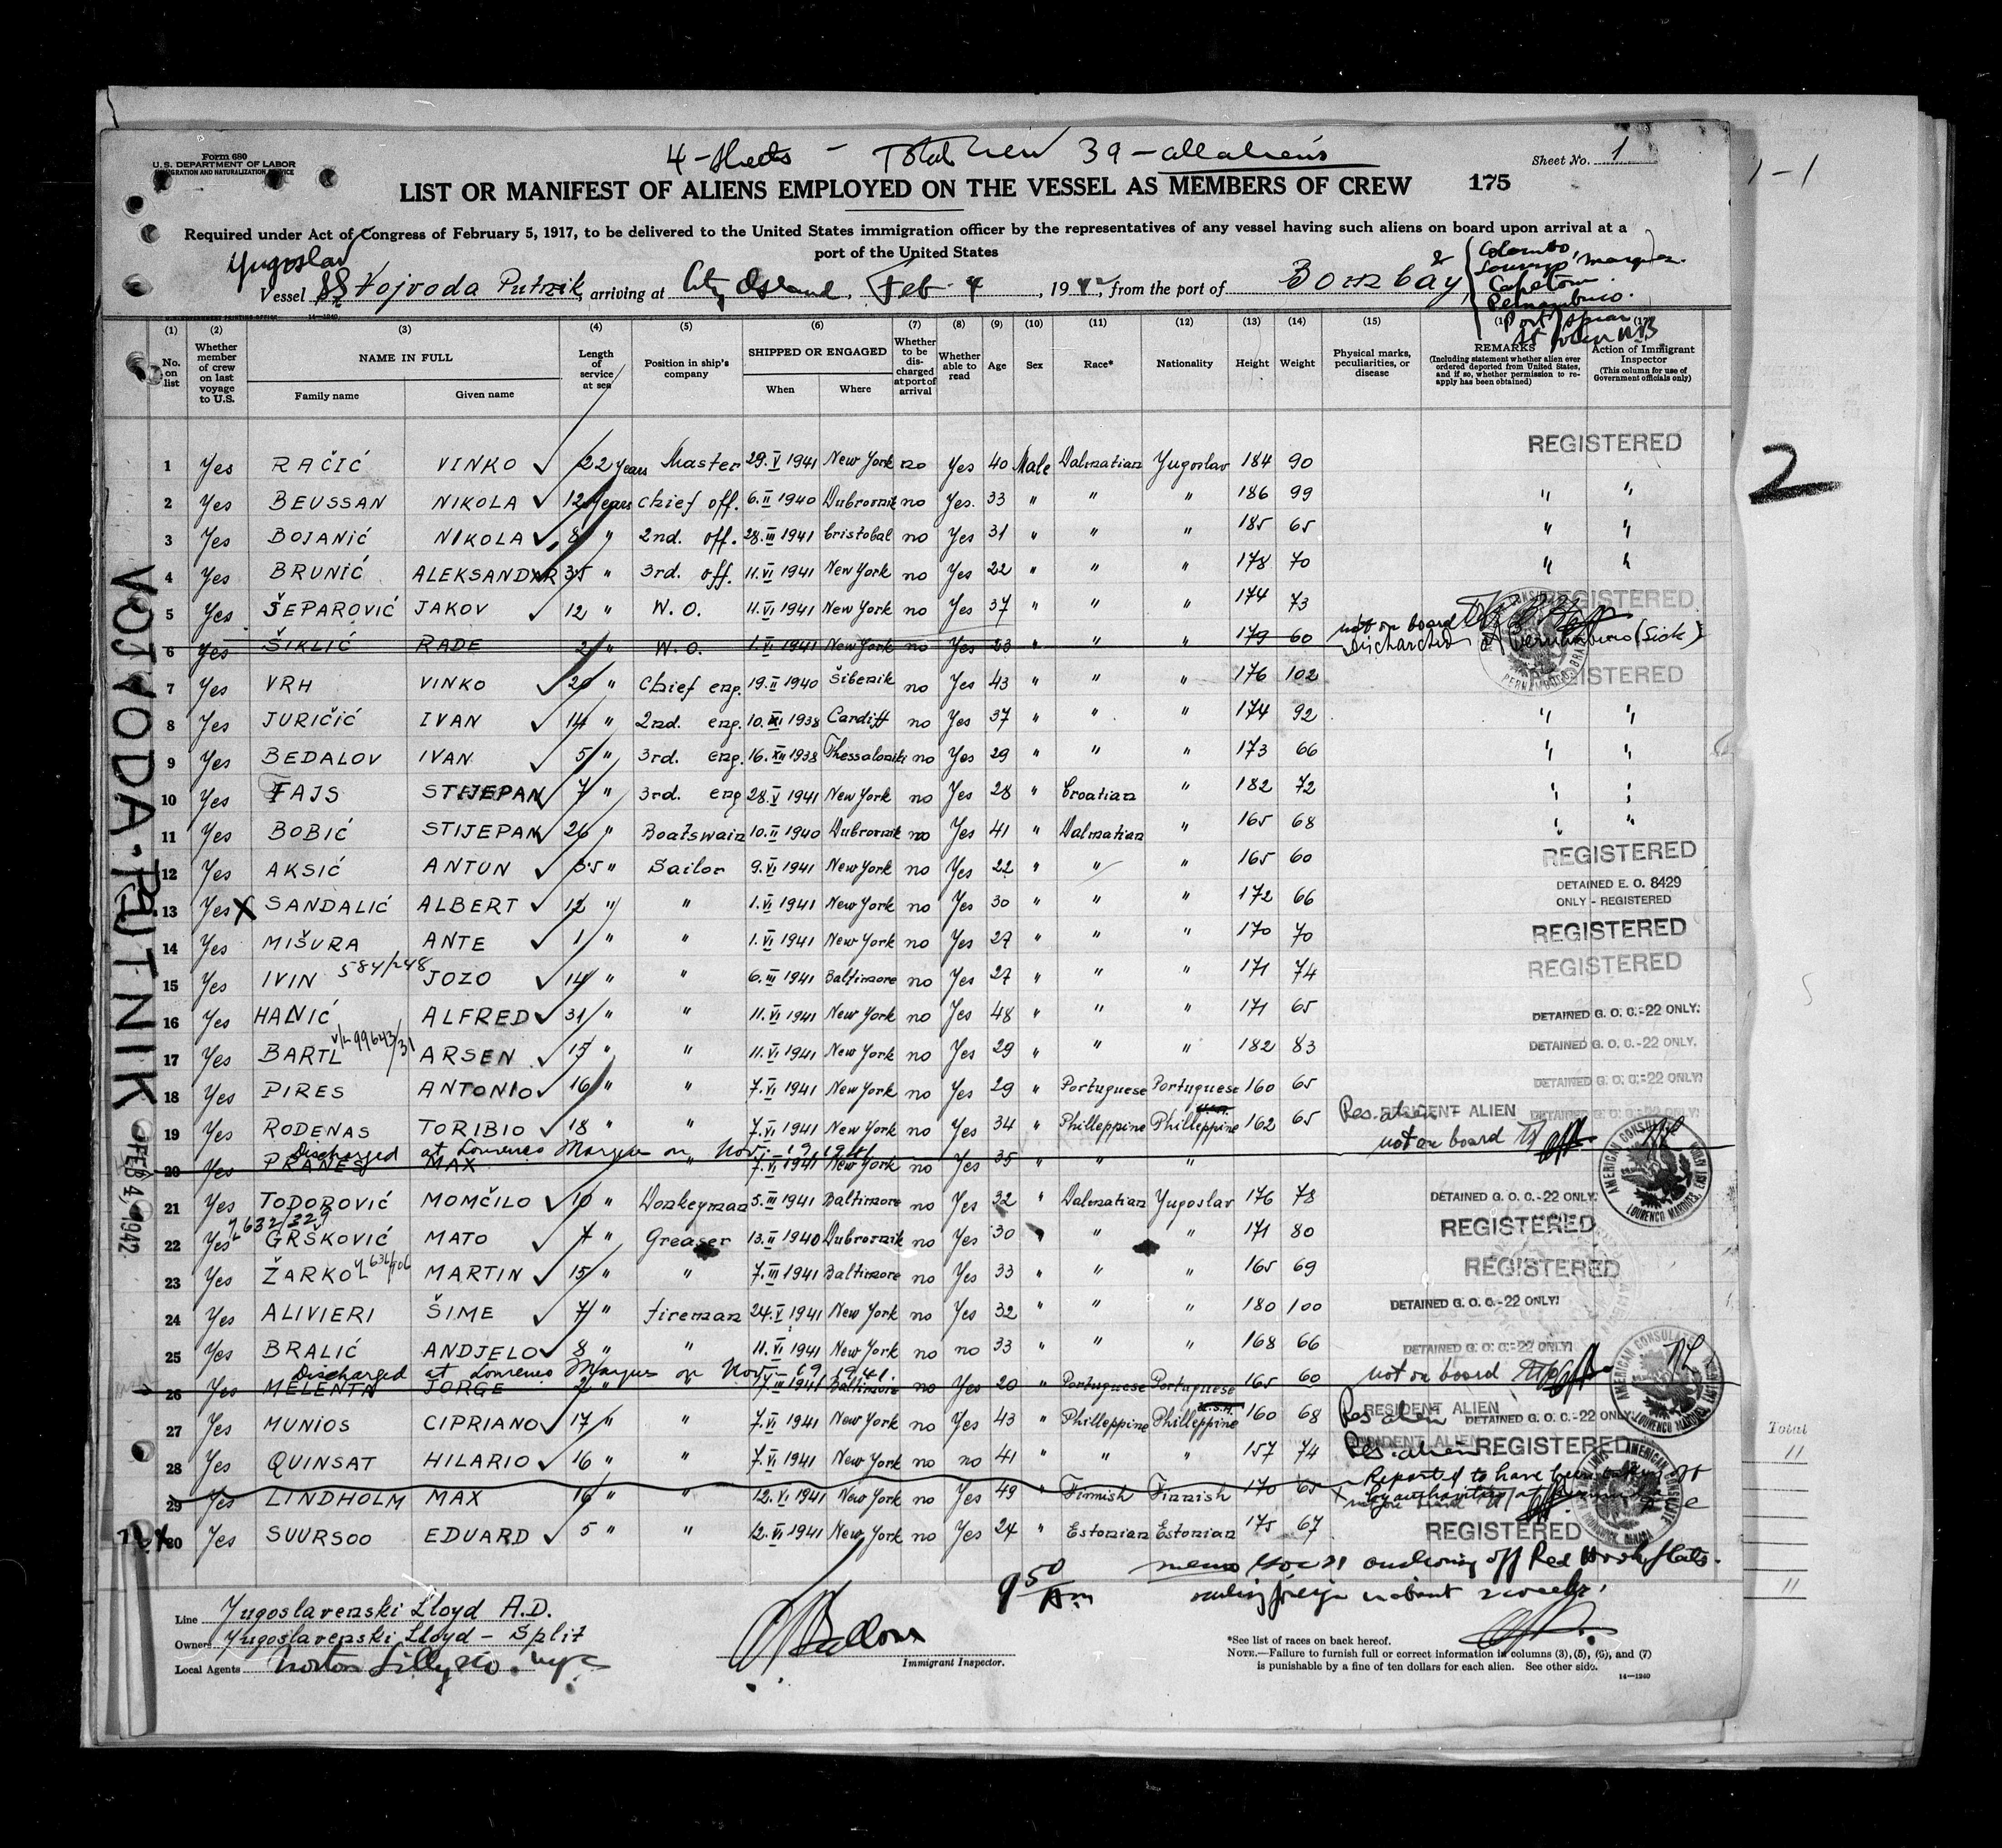 4 - sheets - Total crew 39 - all aliens
Form 680
U.S. DEPARTMENT OF LABOR
IMMIGRATION AND NATURALIZATION SERVICE
Sheet No. 1
LIST OR MANIFEST OF ALIENS EMPLOYED ON THE VESSEL AS MEMBERS OF CREW 175
1-1
Required under Act of Congress of February 5, 1917, to be delivered to the United States immigration officer by the representatives of any vessel having such aliens on board upon arrival at a
port of the United States
Yugoslav
Vessel SS Vojvoda Putnik, arriving at City Island, Feb. 4, 1942, from the port of Bombay, &
Colombo,
Lourenço Marques.
Capetown
Pernambuco.
Port Spain
St John NB
(1) (2) (3) (4) (5) (6) (7) (8) (9) (10) (11) (12) (13) (14) (15)
No. on list
Whether member of crew on last voyage to U.S.
NAME IN FULL
Family name Given name
Length of service at sea
Position in ship's company
SHIPPED OR ENGAGED
When Where
Whether to be discharged at port of arrival
Whether able to read
Age
Sex
Race*
Nationality
Height
Weight
Physical marks, peculiarities, or disease
REMARKS
(Including statement whether alien ever ordered deported from United States, and if so, whether permission to reapply has been obtained)
Action of Immigrant Inspector
(This column for use of Government officials only)
REGISTERED
1 Yes RAČIĆ VINKO 22 years Master 29.V 1941 New York no Yes 40 Male Dalmatian Yugoslav 184 90
2 Yes BEUSSAN NIKOLA 12 years Chief off. 6.II 1940 Dubrovnik no Yes. 33 " " " 186 99 " "
3 Yes BOJANIĆ NIKOLA 8 " 2nd. off. 28.III 1941 Cristobal no Yes 31 " " " 185 65 " "
4 Yes BRUNIĆ ALEKSANDAR 3,5 " 3rd. off. 11.VI 1941 New York no Yes 22 " " " 178 70 " "
5 Yes ŠEPAROVIĆ JAKOV 12 " W. O. 11.VI 1941 New York no Yes 37 " " " 174 73 REGISTERED
not on board
6 Yes ŠIKLIĆ RADE 2 " W. O. 1.VI 1941 New York no Yes 23 " " " 179 60 Discharched at Pernambuco (Sick)
7 Yes VRH VINKO 20 " Chief eng. 19.II 1940 Šibenik no Yes 43 " " " 176 102 REGISTERED
8 Yes JURIČIĆ IVAN 14 " 2nd. eng. 10.XI 1938 Cardiff no Yes 37 " " " 174 92 " "
9 Yes BEDALOV IVAN 5 " 3rd. eng. 16.XII 1938 Thessaloniki no Yes 29 " " " 173 66 " "
10 Yes FAJS STJEPAN 7 " 3rd. eng 28.V 1941 New York no Yes 28 " Croatian " 182 72 " "
11 Yes BOBIĆ STIJEPAN 26 " Boatswain 10.II 1940 Dubrovnik no Yes 41 " Dalmatian " 165 68 " "
12 Yes AKSIĆ ANTUN 3,5 " Sailor 9.VI 1941 New York no Yes 22 " " " 165 60 REGISTERED
13 Yes X SANDALIĆ ALBERT 12 " " 1.VI 1941 New York no Yes 30 " " " 172 66 DETAINED E. O. 8429 ONLY - REGISTERED
14 Yes MIŠURA ANTE 1 " " 1.VI 1941 New York no Yes 27 " " " 170 70 REGISTERED
15 Yes IVIN 584/248 JOZO 14 " " 6.III 1941 Baltimore no Yes 27 " " " 171 74 REGISTERED
16 Yes HANIĆ ALFRED 31 " " 11.VI 1941 New York no Yes 48 " " " 171 65 DETAINED G. O. C.-22 ONLY.
17 Yes BARTL 99643/31 ARSEN 15 " " 11.VI 1941 New York no Yes 29 " " " 182 83 DETAINED G. O. C.-22 ONLY.
18 Yes PIRES ANTONIO 16 " " 7.VI 1941 New York no Yes 29 " Portuguese Portuguese 160 65 DETAINED G. O. C.-22 ONLY.
19 Yes RODENAS TORIBIO 18 " " 7.VI 1941 New York no Yes 34 " Philleppine Philleppine 162 65 Res. alien RESIDENT ALIEN DETAINED G. O. C.-22 ONLY.
Discharged at Lourenco Marques on Nov. 19, 1941 not on board
20 Yes PRANES MAX " 7.VI 1941 New York no Yes 35 " " "
21 Yes TODOROVIĆ MOMČILO 10 " Donkeyman 5.III 1941 Baltimore no Yes 32 " Dalmatian Yugoslav 176 78 DETAINED G. O. C.-22 ONLY.
22 Yes 632/229 GRŠKOVIĆ MATO 7 " Greaser 13.II 1940 Dubrovnik no Yes 30 " " " 171 80 REGISTERED
23 Yes ŽARKO 636/906 MARTIN 15 " " 7.III 1941 Baltimore no Yes 33 " " " 165 69 REGISTERED
24 Yes ALIVIERI ŠIME 7 " Fireman 24.V 1941 New York no Yes 32 " " " 180 100 DETAINED G. O. C.-22 ONLY.
25 Yes BRALIĆ ANDJELO 8 " " 11.VI 1941 New York no no 33 " " " 168 66 DETAINED G. O. C.-22 ONLY.
Discharged at Lourenco Marques on Nov. 19 1941. not on board
26 Yes MELENTN JORGE 2 " " 7.III 1941 Baltimore no Yes 20 " Portuguese Portuguese 165 60
27 Yes MUNIOS CIPRIANO 17 " " 7.VI 1941 New York no Yes 43 " Philleppine Philleppine 160 68 Res. alien RESIDENT ALIEN DETAINED G. O. C.-22 ONLY.
28 Yes QUINSAT HILARIO 16 " " 7.VI 1941 New York no no 41 " " " 157 74 Res. alien RESIDENT ALIEN REGISTERED
Reported to have been taken off
by authorities at
29 Yes LINDHOLM MAX 16 " " 12.VI 1941 New York no Yes 49 " Finnish Finnish 170 65
30 Yes SUURSOO EDUARD 5 " " 12.VI 1941 New York no Yes 24 " Estonian Estonian 175 67 REGISTERED
9 50 Am
anchoring off Red Hook flats.
sailing foreign in about 2 weeks.
Line Jugoslavenski Lloyd A.D.
Owners Jugoslavenski Lloyd - Split
Local Agents Norton Lilly & Co. nyc
Immigrant Inspector.
*See list of races on back hereof.
NOTE.—Failure to furnish full or correct information in columns (3), (5), (6), and (7)
is punishable by a fine of ten dollars for each alien. See other side.
14—1240
VOJVODA·PUTNIK
FEB 4, 1942
AMERICAN CONSULATE
LOURENCO MARQUES, EAST AFRICA
2
Total
11
11